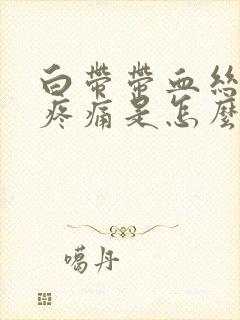 白带带血絲
疼痛是怎麼
噶丹